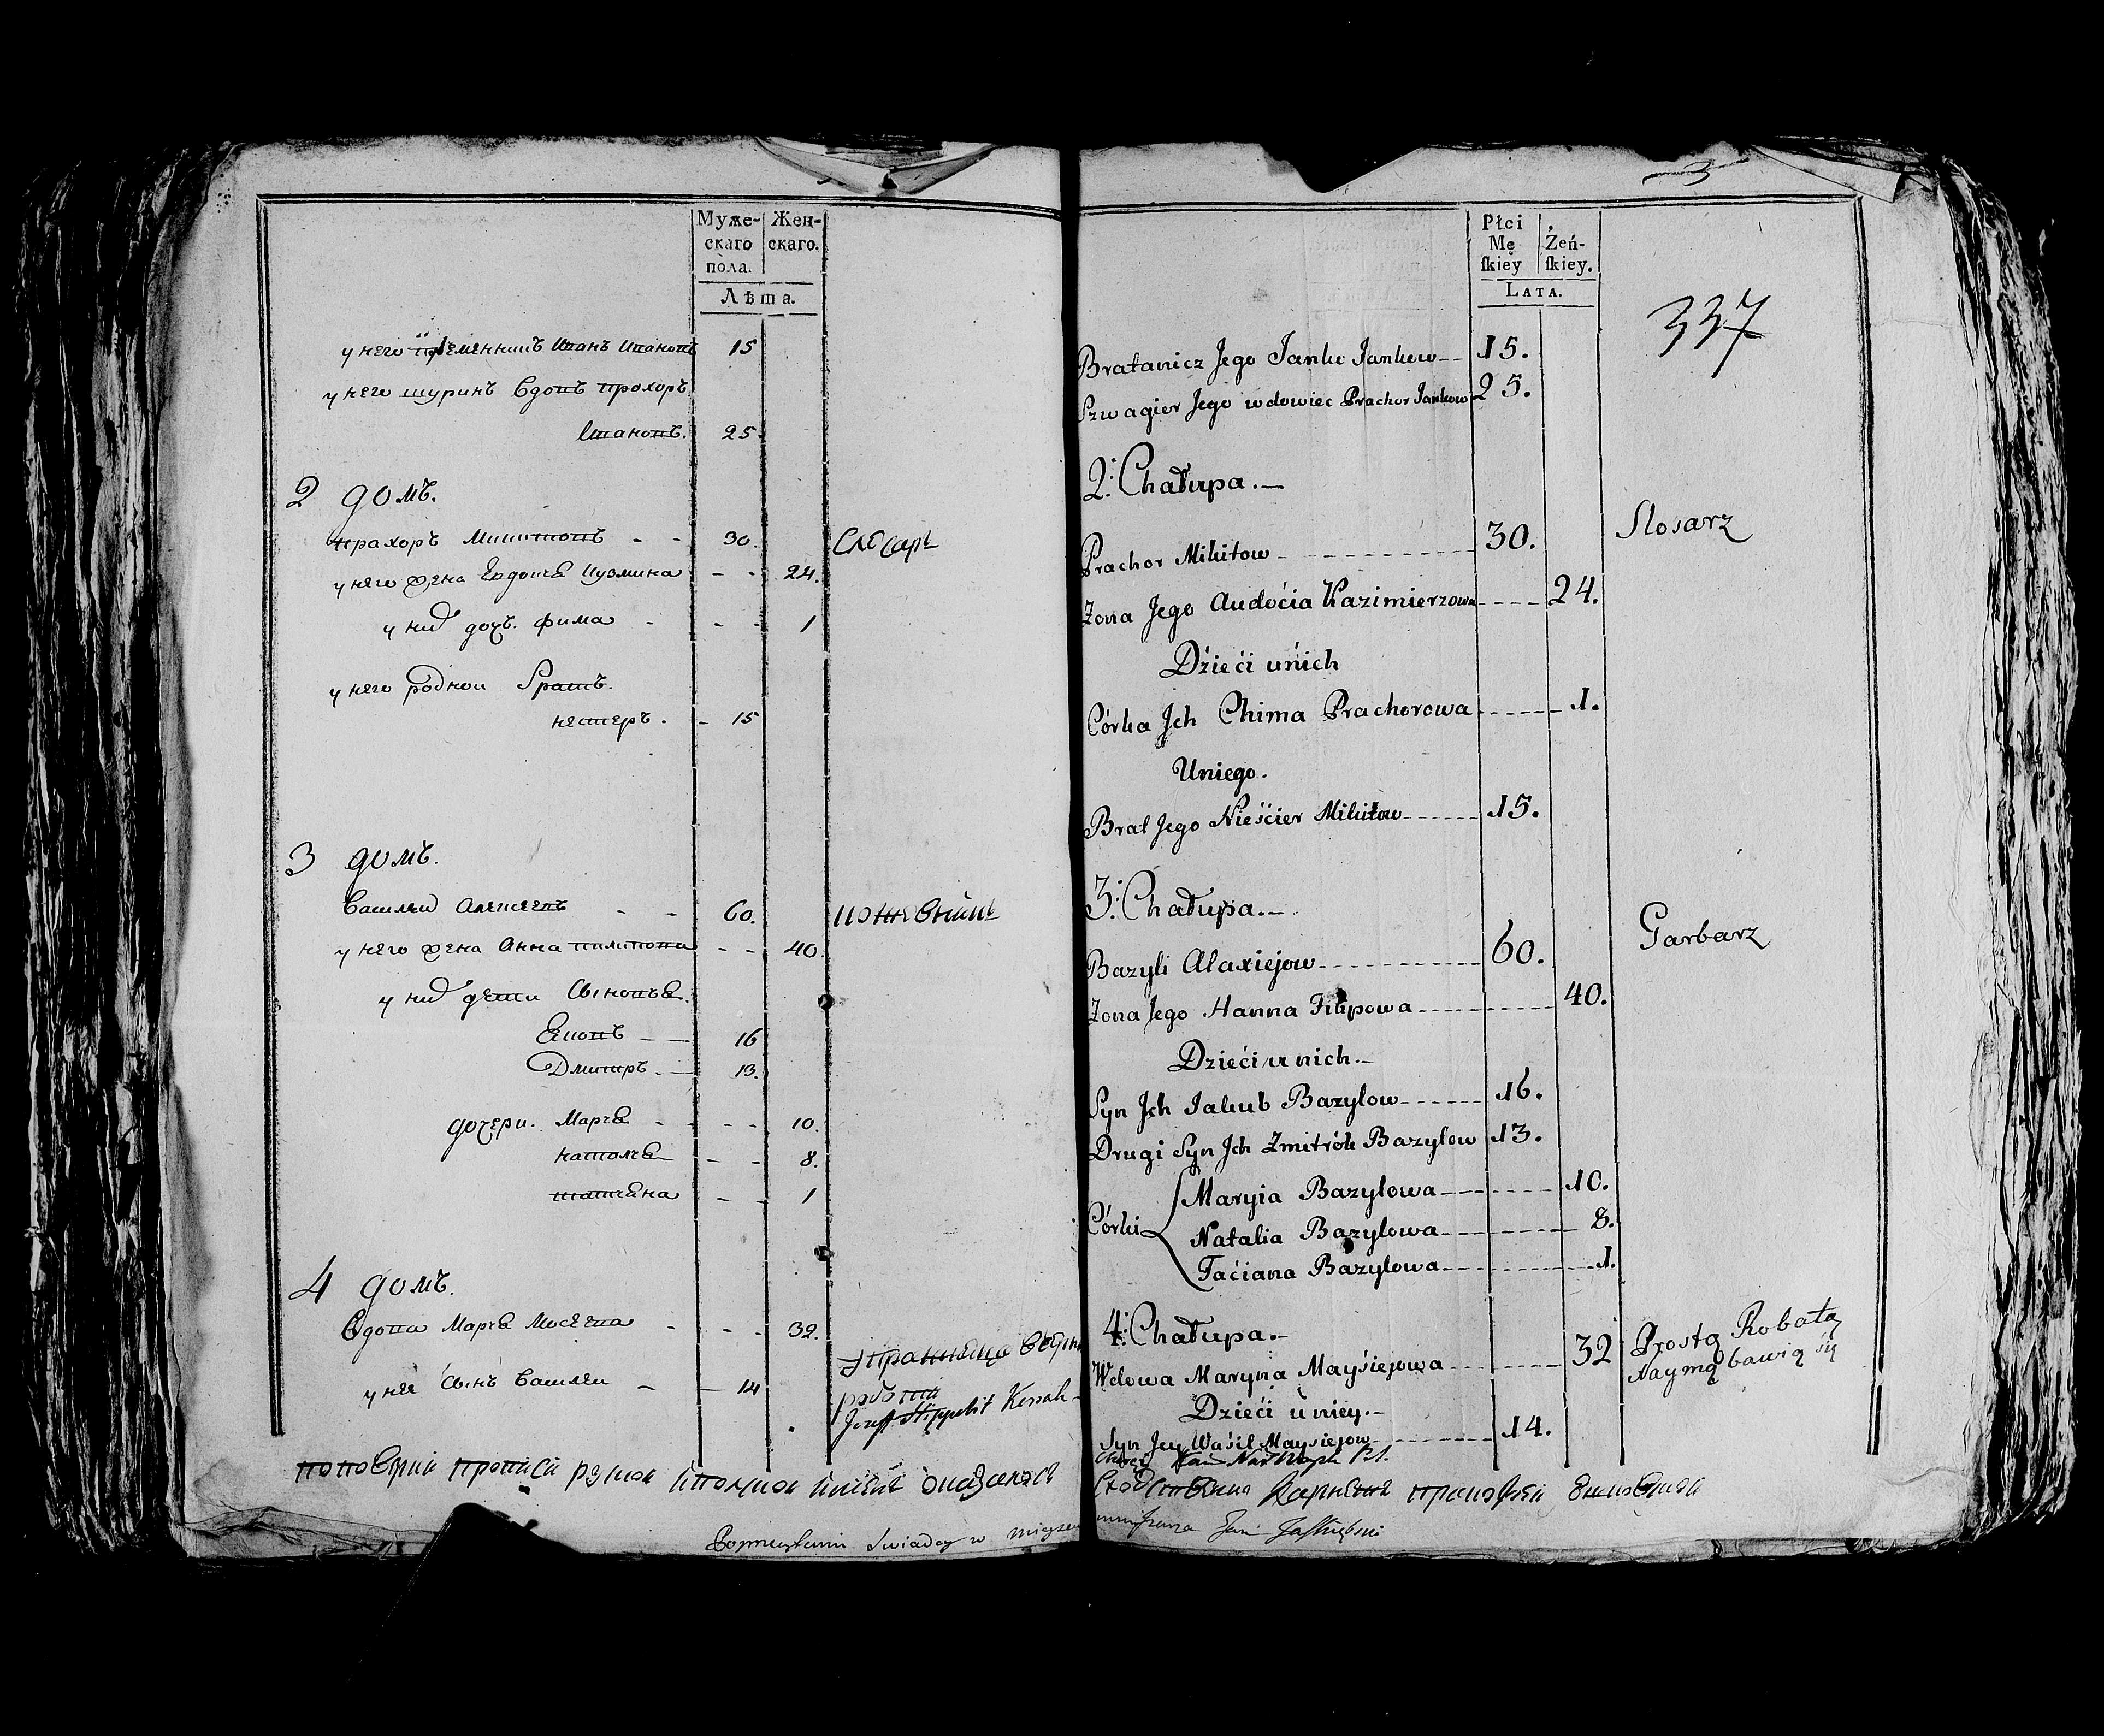 Муже-
скаго
пола.
Жен-
скаго.
Лѣта.
у него племенникъ Иванъ Ивановъ 15
у него шуринъ вдовъ прохоръ
Ивановъ. 25
2 домъ.
прахоръ Микитовъ - - 30. слесарь
у него жена Евдокѣя Кузмина - - 24.
у них дочь. фима - - - 1
у него родной братъ.
нестеръ. - 15
3 домъ.
Василей Алексеевъ - - 60. кожевникъ
у него жена Анна пилипова - - 40.
у них дети сыновья.
16
Дмитръ. - 13.
дочери. Марья - - - 10.
наталья - - 8.
татьяна - - 1
4 домъ.
Вдова Марья Мосеева - - - 32.
у нее сынъ Василеи - - 14
работы
Jozeff Hippolit Kossak-
337
Płci
Mę
ſkiey
Żeń-
ſkiey.
LATA.
Bratanicz Jego Janko Jankow-- 15.
Szwagier Jego wdowiec Prachor Jankow 25.
2: Chałupa.-
Prachor Mikitow 30. Slosarz
Żona Jego Audocia Kazimierzowa 24.
Dzieći u nich
Córka Jch Chima Prachorowa 1.
Uniego.
Brat Jego Nieścier Mikitow 15.
3: Chałupa.-
Bazyli Alaxiejow 60. Garbarz
Żona Jego Hanna Filipowa 40.
Dzieći u nich.-
Syn Jch Jakub Bazylow 16.
Drugi Syn Jch Zmitrók Bazylow 13.
Córki
Maryia Bazylowa 10.
Natalia Bazylowa 8.
Taćiana Bazylowa 1.
4: Chałupa.-
Wdowa Maryna Mayśiejowa 32 Prostą Robatą
Naymą bawią się
Dzieći u niey.-
Syn Jey Waśil Mayśiejow 14.